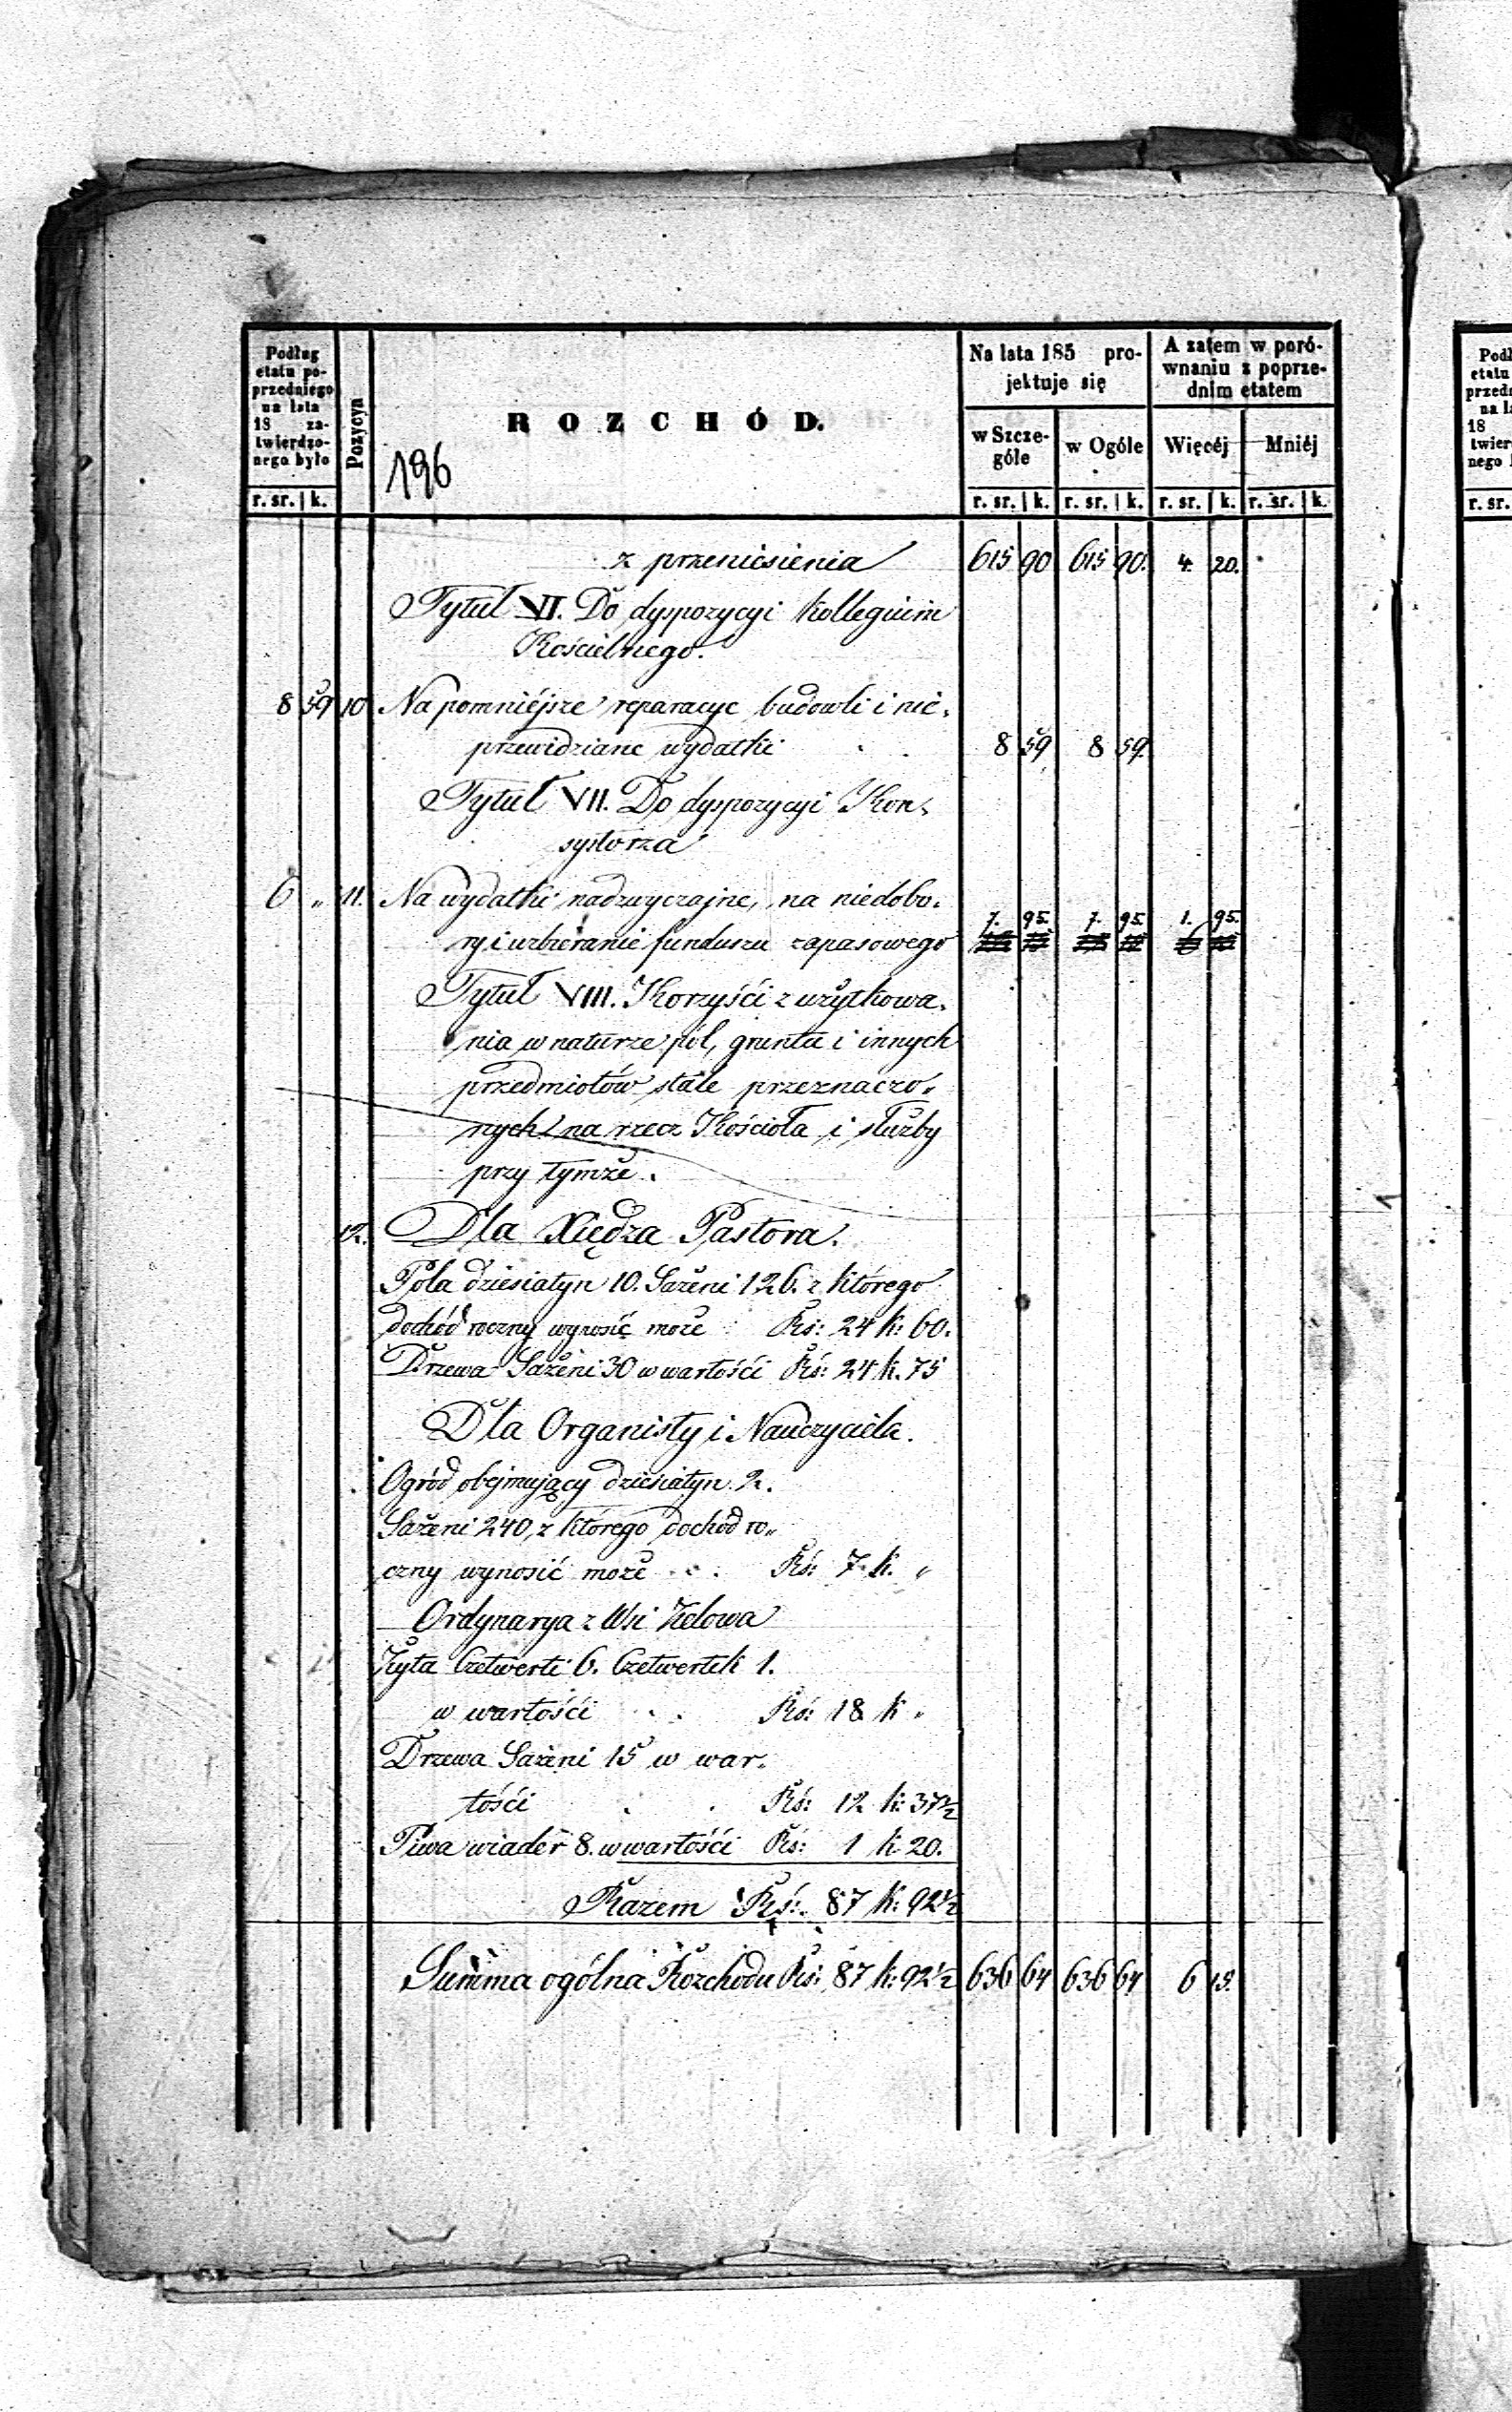 Podług etatu poprzedniego na lata 18 zatwierdzonego było
Pozycya
ROZCHÓD.
Na lata 185 projektuje się
A zatem w porównaniu z poprzednim etatem
w Szczególe
w Ogóle
Więcéj
Mniéj
r. sr. k. r. sr. k. r. sr. k. r. sr. k. r. sr. k.
196
z przeniesienia 615 90 615 90. 4. 20.
Tytuł VI. Do dyspozycyi Kollegium
Kościelnego.
8 59 10 Na pomniéjsze reparacye budowli i nie-
przewidziane wydatki 8 59 8 59.
Tytuł VII. Do dyspozycyi Kon-
systorza
6 „ 11. Na wydatki nadzwyczajne, na niedobo-
ry i uzbieranie funduszu zapasowego 7. 95. 7. 95. 1. 95.
Tytuł VIII. Korzyści z użytkowa-
nia w naturze pól, gruntu i innych
przedmiotów stale przeznaczo-
nych na rzecz Kościoła i służby
przy tymże.
12. Dla Xiędza Pastora.
Pola dziesiatyn 10. Sażeni 126. z którego
dochód roczny wynosić może Rś: 24 k: 60.
Drzewa Sażeni 30 w wartości Rś: 24 k. 75
Dla Organisty i Nauczyciela.
Ogród obejmujący dziesiatyn 2.
Sażeni 240, z którego dochód ro-
czny wynosić może Rś: 7. k. „
Ordynarya z Wsi Zelowa
Żyta Czetwerti 6. Czetwertek 1.
w wartości Rś: 18 k „
Drzewa Sażeni 15 w war-
tości Rś: 12 k: 37½
Piwa wiader 8. w wartości Rś: 1 k 20.
Razem Rś: 87 k: 92½
Summa ogólna Rozchodu Rś: 87 k: 92½ 636 64 636 64 6 15.
Podł
etatu
przed
na l
18
twier
nego
r. sr.